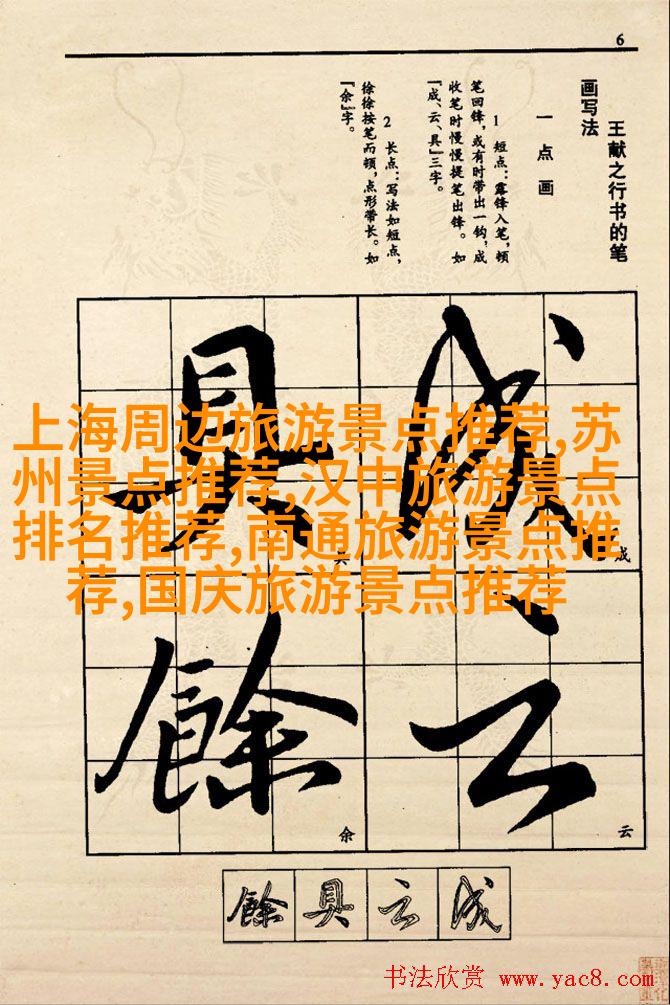 6
王献之行书的笔
画写法
一点画
1 短点：露锋入笔，顿
笔回锋，或有时带出一钩，成
收笔时慢慢提笔出锋。如
「成、云、具」三字。
2 长点：写法如短点，
徐徐按笔而顿，点形带长。如
「余」字。
成
具
云
餘
成
云
余
上海周边旅游景点推荐,苏
州景点推荐,汉中旅游景点
排名推荐,南通旅游景点推
荐,国庆旅游景点推荐
餘具云成
书法欣赏 www.yac8.com